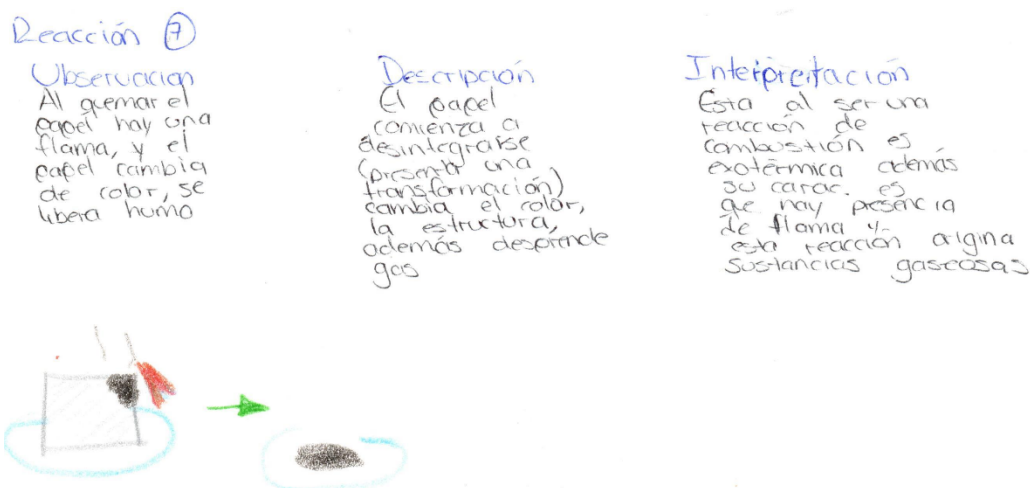 Reacción 7
Observación
Al quemar el
papel hay una
flama, y el
papel cambia
de color, se
libera humo
Descripción
El papel
comienza a
desintegrarse
(presenta una
transformación)
cambia el color,
la estructura,
además desprende
gas
Interpretación
Esta al ser una
reacción de
combustión es
exotérmica además
su carac. es
que hay presencia
de flama y
esta reacción origina
sustancias gaseosas